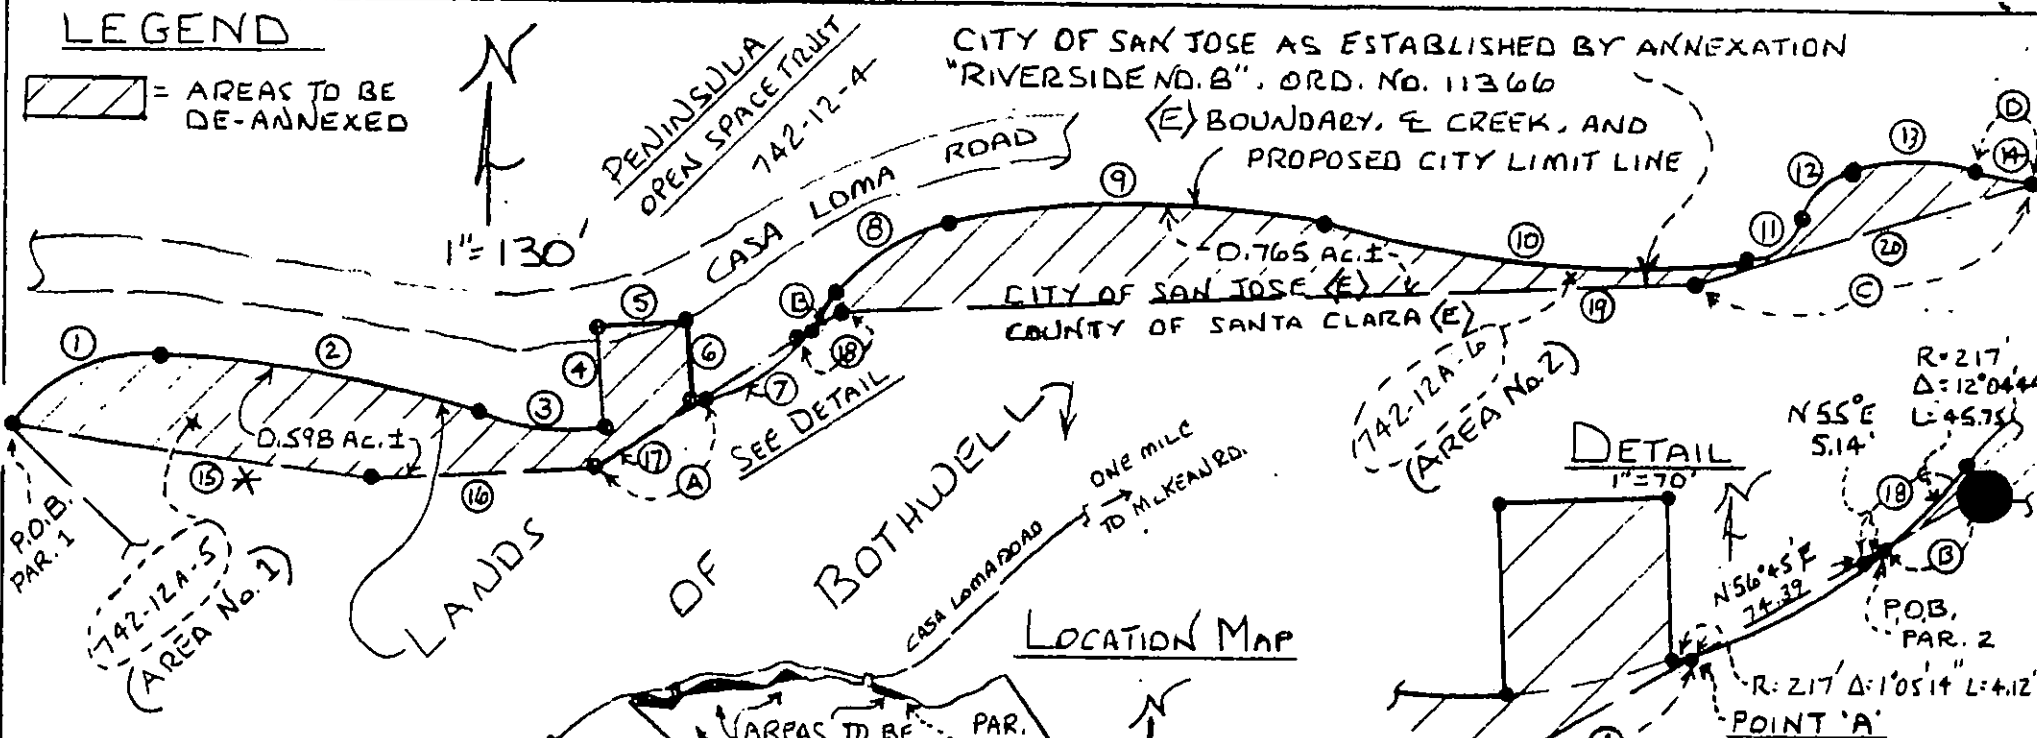 LEGEND
= AREAS TO BE
DE-ANNEXED
N
1"=130'
PENINSULA
OPEN SPACE TRUST
742-12-4
CITY OF SAN JOSE AS ESTABLISHED BY ANNEXATION
"RIVERSIDE NO. 8", ORD. NO. 11366
(E) BOUNDARY, ℄ CREEK, AND
PROPOSED CITY LIMIT LINE
CASA LOMA ROAD
1
2
3
4
5
6
7
8
9
10
11
12
13
14
D
B
18
15
16
17
A
19
20
C
0.598 AC.±
0.765 AC.±
CITY OF SAN JOSE (E)
COUNTY OF SANTA CLARA (E)
SEE DETAIL
P.O.B.
PAR. 1
742-12A-5
(AREA No. 1)
742-12A-6
(AREA No. 2)
LANDS OF BOTHWELL
CASA LOMA ROAD
ONE MILE
TO McKEAN RD.
LOCATION MAP
N
AREAS TO BE
PAR.
DETAIL
1"=70'
N
R=217'
Δ=12°04'44
L=45.75
N55°E
5.14'
18
B
N56°45'E
74.39
P.O.B.
PAR. 2
R=217' Δ=1°05'14" L=4.12'
POINT 'A'